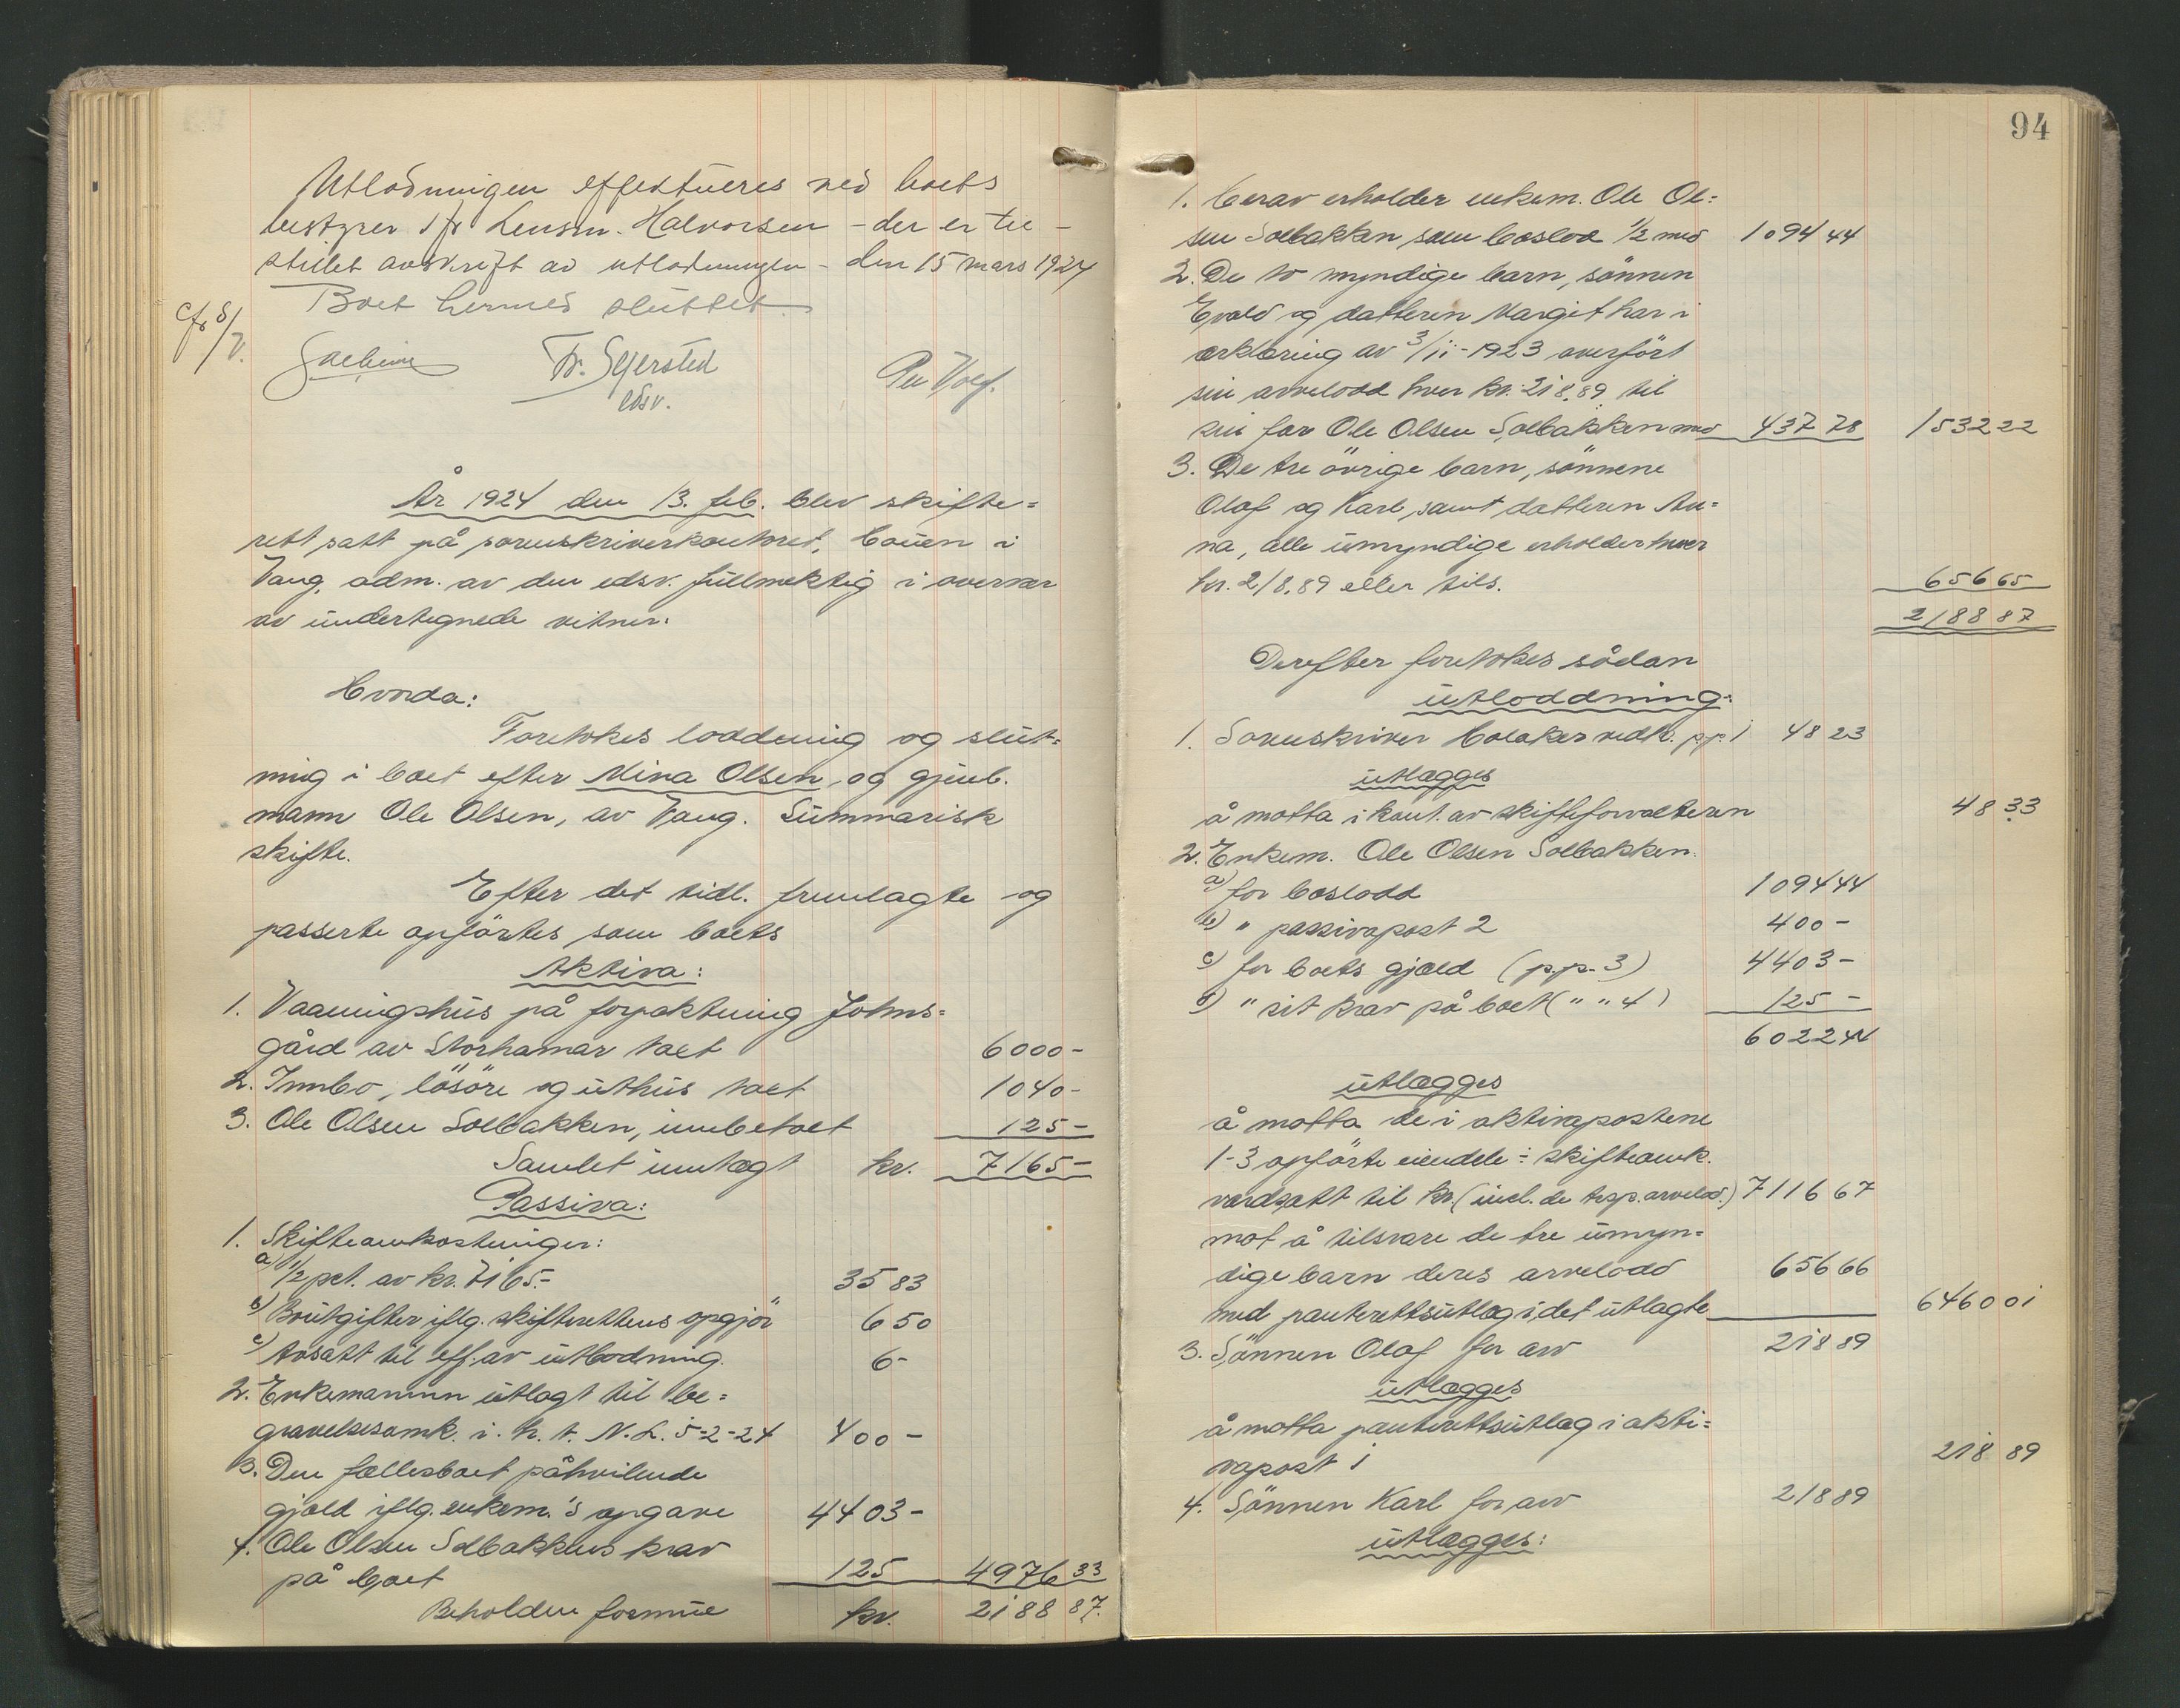 Utlodningen effektueres ved boets
bestyrer f. fr. Lensm. Halvorsen - der er til-
stillet avskrift av utlodningen - den 15 mars 1924
Boet hermed sluttet.
cfr 8/V.
Tr. Segersted
edsv.
Per Volf.
År 1924 den 13. feb. blev skifte=
rett satt på sorenskriverkontoret, Couen i
Vang, adm. av den edsv. fullmektig i overvær
av undertegnede vitner.
Hvorda:
Foretokes loddning og slut=
ning i boet efter Mina Olsen og gjenl.
mann Ole Olsen, av Vang. Summarisk
skifte.
Efter det tidl. fremlagte og
passerte opførtes som boets
Aktiva:
1. Vaaningshus på forpaktning Johns=
gård av Storhamar taxt 6000-
2. Innbo, løsøre og uthus taxt 1040-
3. Ole Olsen Solbakken, innbetalt 125-
Samlet inntægt kr. 7165-
Passiva:
1. Skifteomkostninger:
a) 1/2 pct. av kr. 7165.- 35 83
b) Boutgifter iflg. skifterettens opgjør 6 50
c) Avsatt til eff. av utlodning. 6-
2. Enkemannen utlagt til be=
gravelsesomk. i. h. t. N.L. 5-2-24 400-
3. Den fællesboet påhvilende
gjæld iflg. enkem.'s opgave 4403-
4. Ole Olsen Solbakkens krav
på boet 125 4976 33
Beholden formue kr. 2188 87.
94
1. Herav erholder enkem. Ole Ol=
sen Solbakken som boslod 1/2 med 1094 44
2. De to myndige barn, sønnen
Evald og datteren Margit har i
erklæring av 3/11-1923 overført
sin arvelodd hver kr. 218.89 til
sin far Ole Olsen Solbakken med 437 78 1532 22
3. De tre øvrige barn, sønnene
Olaf og Karl, samt datteren An=
na, alle umyndige erholder hver
kr. 218.89 eller tils. 656 65
2188 87
Derefter foretokes sådan
utloddning:
1. Sorenskriver Holaker vedk. p.p. 1 48 23
utlægges
å motta i kont. av skifteforvalteren 48 33
2. Enkem. Ole Olsen Solbakken.
a) for boslodd 1094 44
b) " passivapost 2 400-
c) for boets gjæld (p.p. 3) 4403-
d) " sit krav på boet (" " 4) 125-
6022 44
utlægges
å motta de i aktivapostene
1-3 opførte eiendele ÷ skifteomk.
verdsatt til kr. (incl. de trsp. arvelod.) 7116 67
mot å tilsvare de tre umyn=
dige barn deres arvelodd 656 66
med panterettsutlæg i det utlagte 6460 01
3. Sønnen Olaf for arv 218 89
utlægges
å motta panterettsutlæg i akti=
vapost 1 218 89
4. Sønnen Karl for arv 218 89
utlægges: